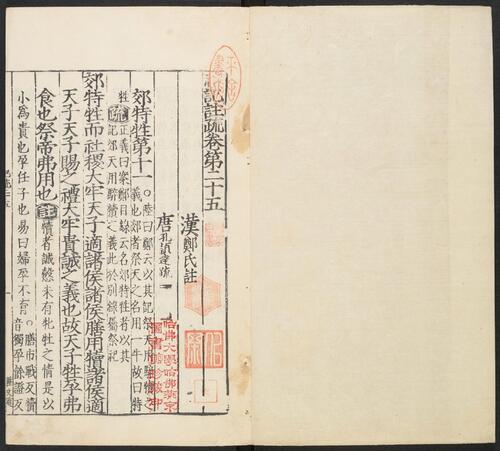 記註疏卷第二十五
漢鄭氏註
唐孔穎達疏
郊特牲第十一
○陸曰鄭云以其記祭天用騂犢之
義也郊者祭天之名用一牛故曰特
牲
疏
正義曰案鄭目錄云名郊特牲者以其
記郊天用騂犢之義此於別錄屬祭祀
郊特牲而社稷大牢天子適諸侯諸侯膳用犢諸侯適
天子天子賜之禮大牢貴誠之義也故天子牲孕弗
食也祭帝弗用也
註
犢者誠慤未有牝牡之情是以
小為貴也孕任子也易曰婦孕不育
○膳市戰反犢
音獨孕餘證反
哈佛大學哈佛燕京
圖書館珍藏印